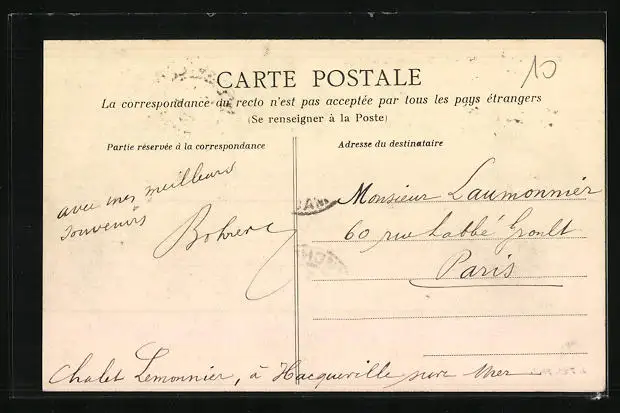 10
CARTE POSTALE
La correspondance du recto n'est pas acceptée par tous les pays étrangers
(Se renseigner à la Poste)
Partie réservée à la correspondance
Adresse du destinataire
avec mes meilleurs
souvenirs
Monsieur Laumonnier
60 rue Labbé Groult
Paris
Chalet Lemonnier, à Hacqueville sur Mer